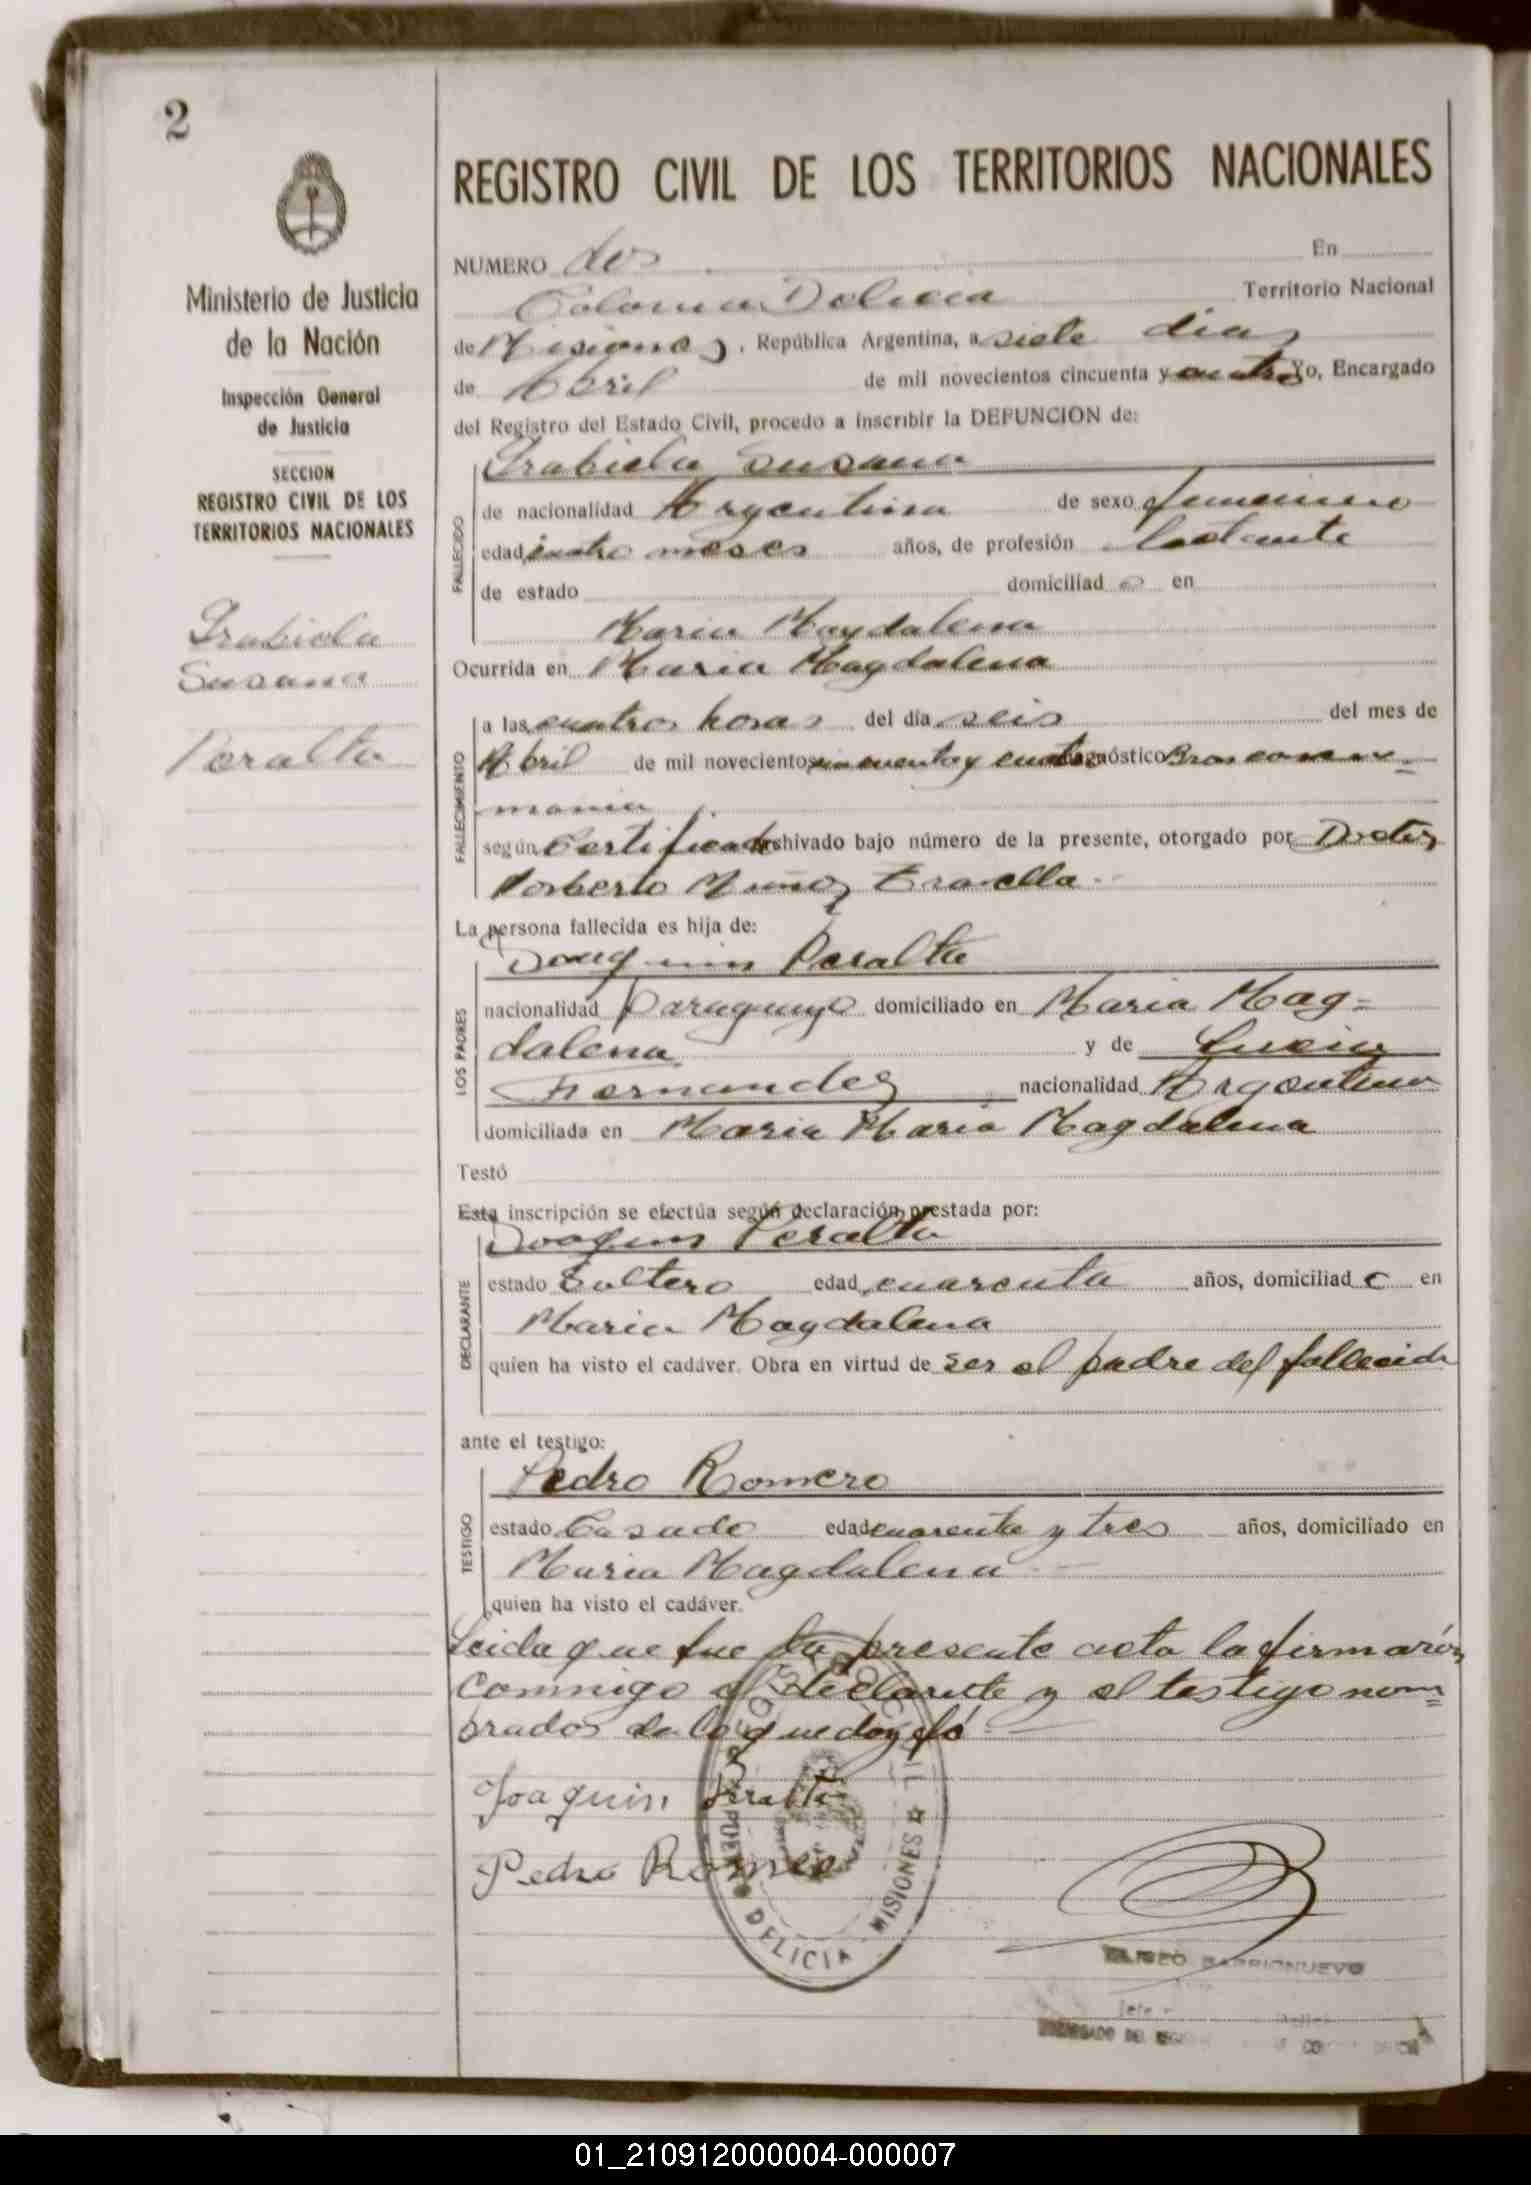 2
REGISTRO CIVIL DE LOS TERRITORIOS NACIONALES
Ministerio de Justicia
de la Nación
Inspección General
de Justicia
SECCION
REGISTRO CIVIL DE LOS
TERRITORIOS NACIONALES
Grabiela
Susana
Peralta
NUMERO dos En
Colonia Delicia Territorio Nacional
de Misiones, República Argentina, a siete dias
de Abril de mil novecientos cincuenta y cuatro Yo, Encargado
del Registro del Estado Civil, procedo a inscribir la DEFUNCION de:
Grabiela Susana
FALLECIDO
de nacionalidad Argentina de sexo femenino
edad cuatro meses años, de profesión lactante
de estado domiciliad o en
Maria Magdalena
Ocurrida en Maria Magdalena
FALLECIMIENTO
a las cuatro horas del día seis del mes de
Abril de mil novecientos cincuenta y cuatro diagnóstico
según Certificado archivado bajo número de la presente, otorgado por Doctor
Norberto Muñoz
La persona fallecida es hija de:
Joaquin Peralta
LOS PADRES
nacionalidad Paraguayo domiciliado en Maria Mag=
dalena y de Lucia
Fernandez nacionalidad Argentina
domiciliada en Maria Maria Magdalena
Testó
Esta inscripción se efectúa según declaración prestada por:
Joaquin Peralta
DECLARANTE
estado Soltero edad cuarenta años, domiciliad o en
Maria Magdalena
quien ha visto el cadáver. Obra en virtud de ser el padre del fallecido
ante el testigo:
Pedro Romero
TESTIGO
estado Casado edad cuarenta y tres años, domiciliado en
Maria Magdalena
quien ha visto el cadáver.
Leida que fue la presente acta la firmarón
commigo el declarante y el testigo nom=
brados de lo que doy fé
Joaquin Peralta
Pedro Romero
DELICIA MISIONES
ELISEO BARRIONUEVO
01_210912000004-000007